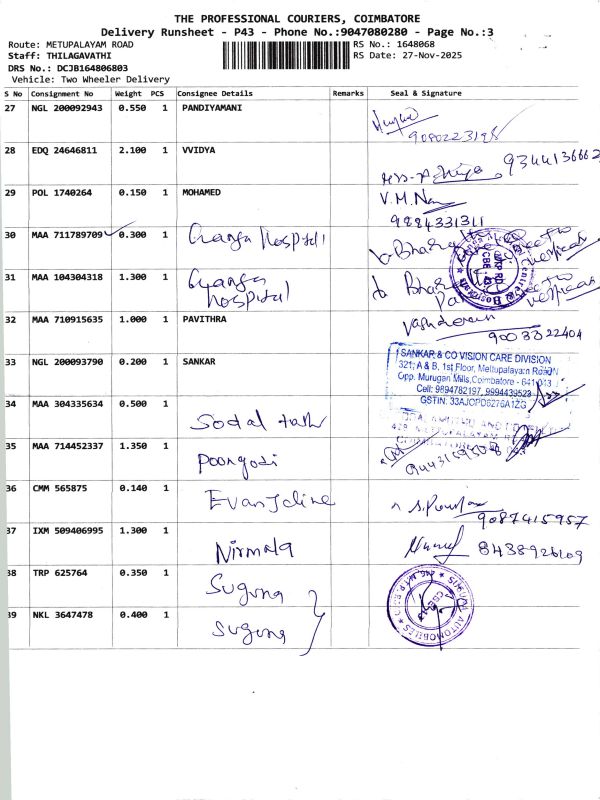 THE PROFESSIONAL COURIERS, COIMBATORE
Delivery Runsheet - P43 - Phone No.:9047080280 - Page No.:3
Route: METUPALAYAM ROAD RS No.: 1648068
Staff: THILAGAVATHI RS Date: 27-Nov-2025
DRS No.: DCJB164806803
Vehicle: Two Wheeler Delivery
S No Consignment No Weight PCS Consignee Details Remarks Seal & Signature
27 NGL 200092943 0.550 1 PANDIYAMANI
9080223198
28 EDQ 24646811 2.100 1 VVIDYA
9344136662
29 POL 1740264 0.150 1 MOHAMED V.M.
9884331311
30 MAA 711789709 0.300 1 Ganga Hospital
31 MAA 104304318 1.300 1 Ganga
hospital
32 MAA 710915635 1.000 1 PAVITHRA
9003322404
33 NGL 200093790 0.200 1 SANKAR
SANKAR & CO VISION CARE DIVISION
321, A & B, 1st Floor, Mettupalayam Road
Opp. Murugan Mills, Coimbatore - 641 043
Cell: 9894782197, 9994439523
GSTIN: 33AJOPD6276A1ZG
34 MAA 304335634 0.500 1 Sodal
35 MAA 714452337 1.350 1 Poongodi
36 CMM 565875 0.140 1 Evangeline
9087415957
37 IXM 509406995 1.300 1 Nirmala
8438926109
38 TRP 625764 0.350 1 Suguna
39 NKL 3647478 0.400 1 Suguna
AUTOMOBILES